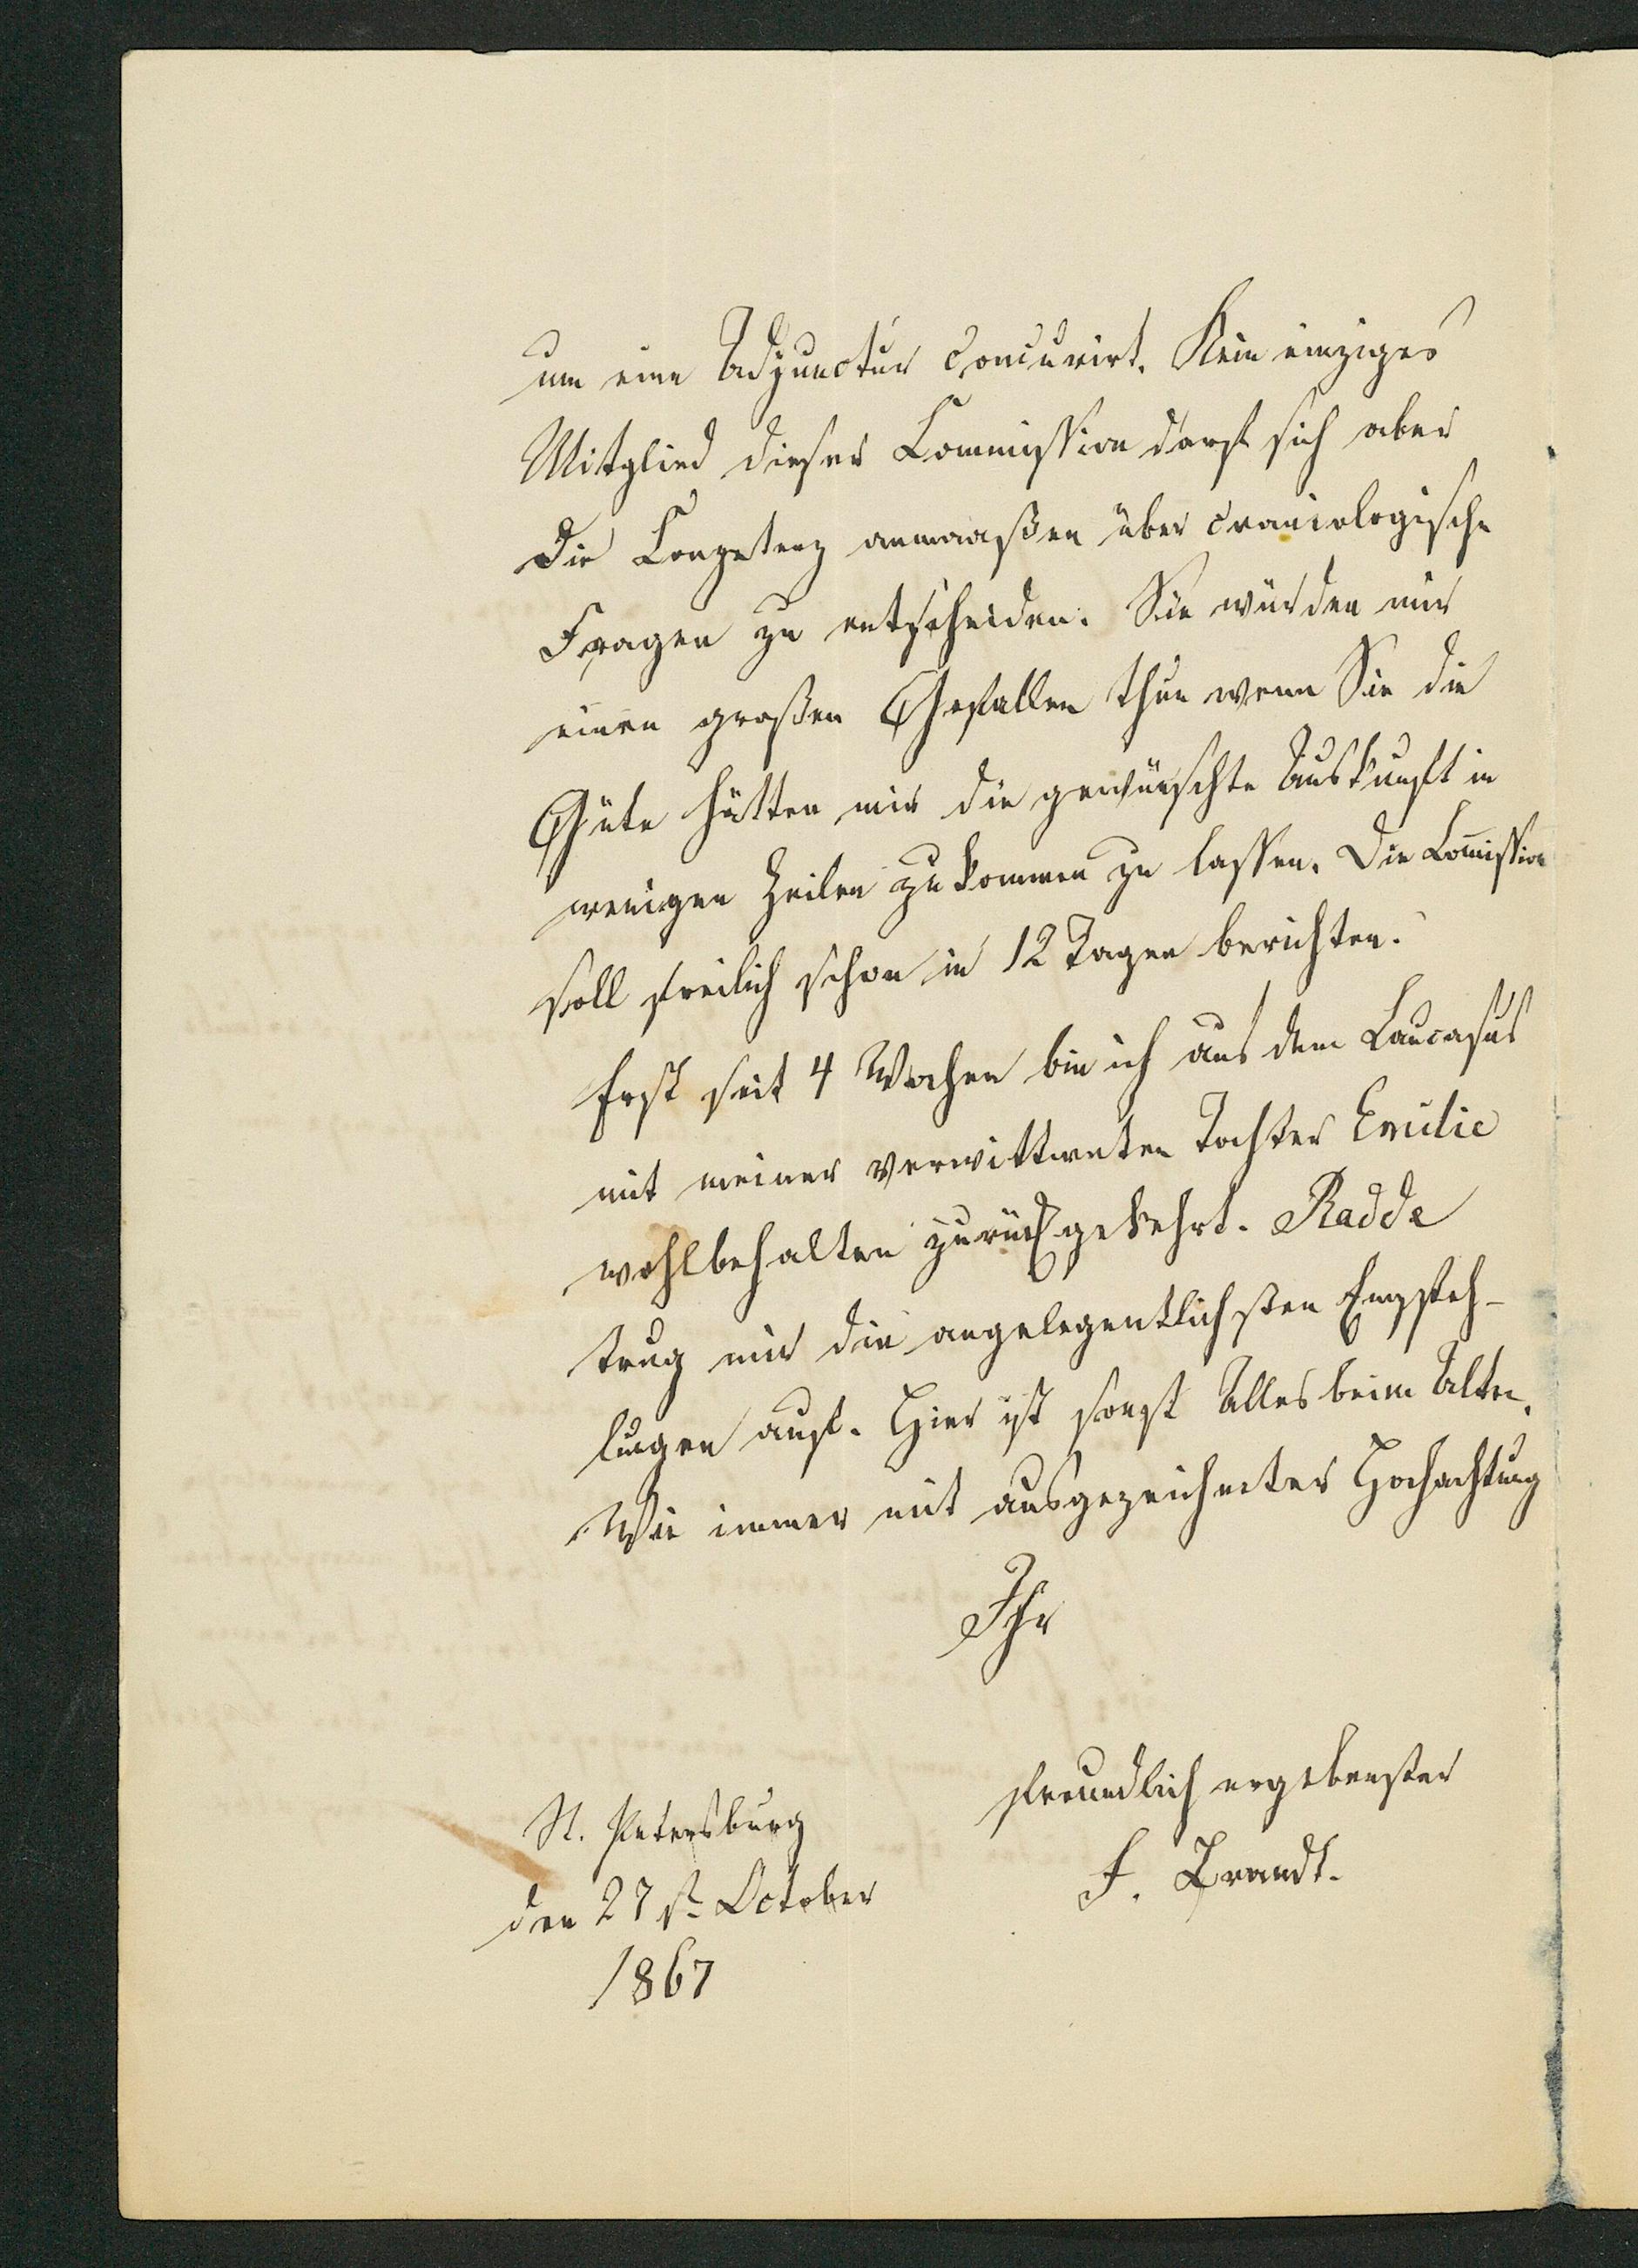 um eine Adjunctur concurirt. Kein einziges
Mitglied dieser Commission darf sich aber
die Competenz anmaaßen über craniologische
Fragen zu entscheiden. Sie würden mir
einen großen Gefallen thun wenn Sie die
Güte hätten mir die gewünschte Auskunft in
wenigen Zeilen zukommen zu lassen. Die Com̄ission
soll freilich schon in 12 Tagen berichten.
Erst seit 4 Wochen bin ich aus dem Caucasus
mit meiner verwittweten Tochter Emilie
wohlbehalten zurückgekehrt. Radde
trug mir die angelegentlichsten Empfeh-
lungen auf. Hier ist sonst Alles beim Alten.
Wie immer mit ausgezeichneter Hochachtung
Ihr
freundlich ergebenster
F. Brandt.
St. Petersburg
den 27st. October
1867